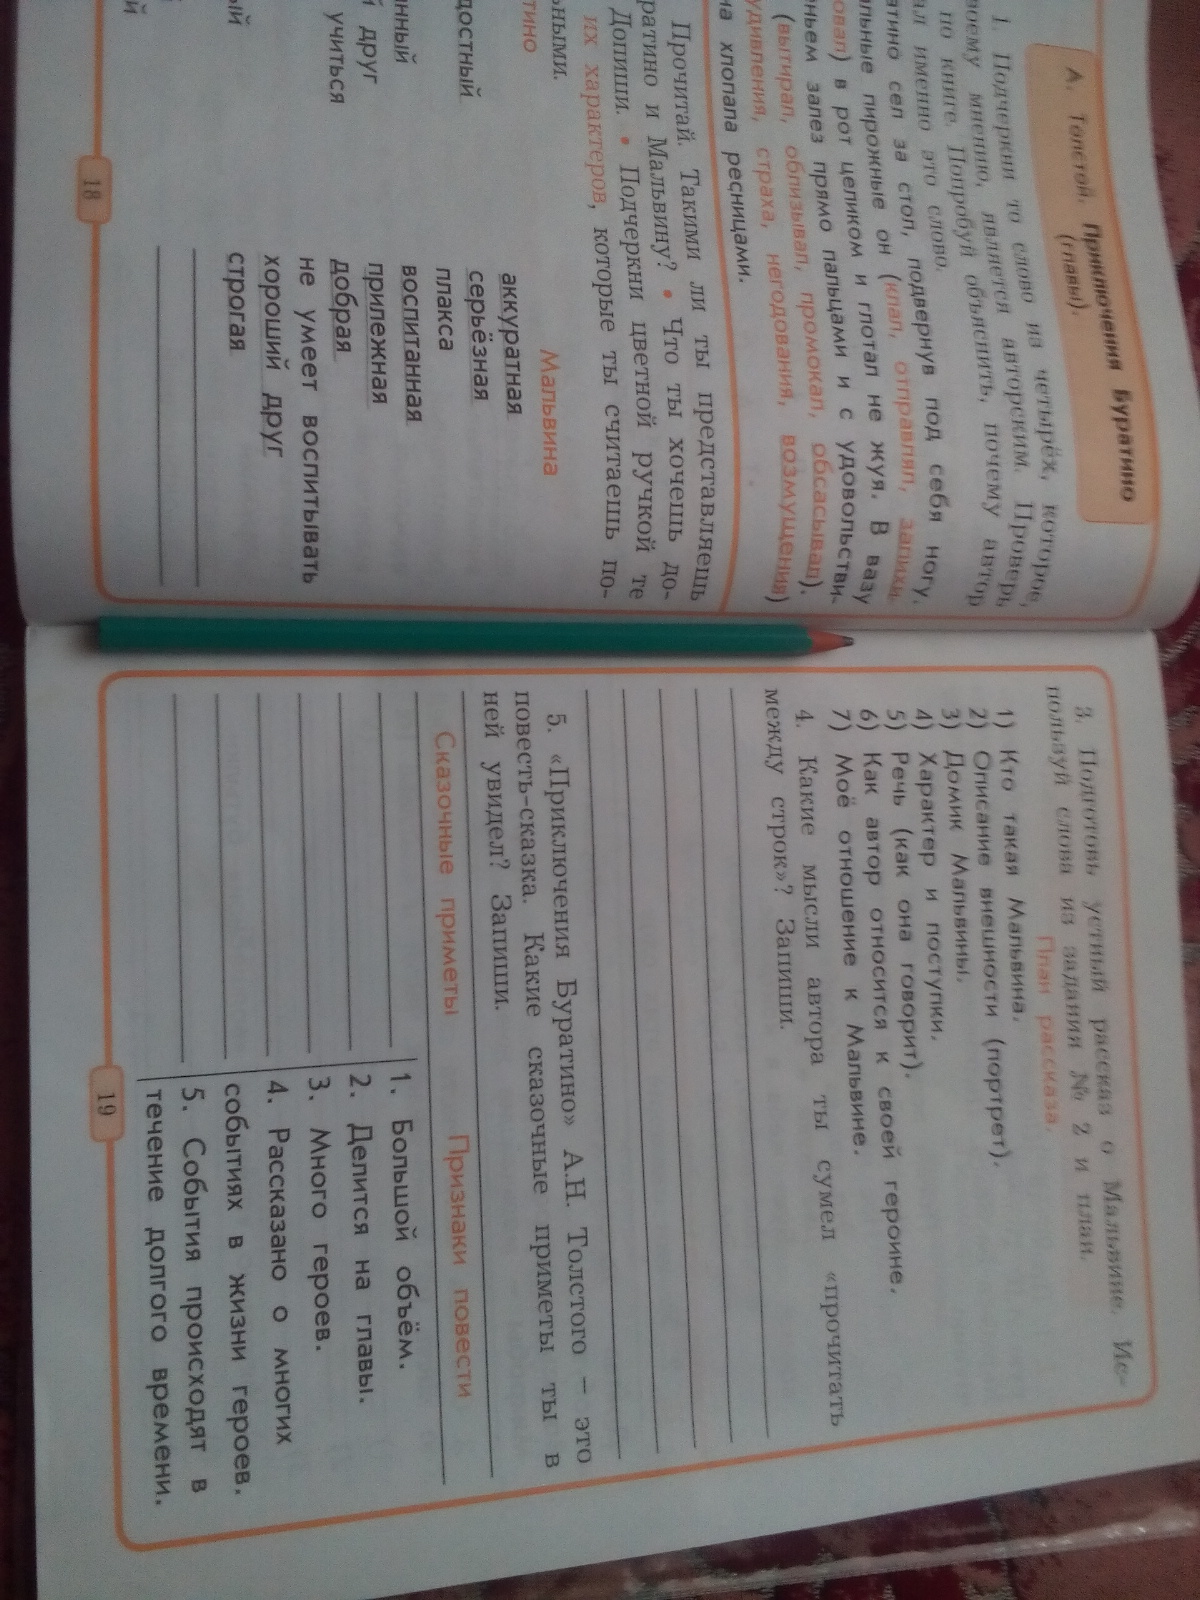 А. Толстой. Приключения Буратино
(главы).
1. Подчеркни то слово из четырёх, которое,
воему мнению, является авторским. Проверь
по книге. Попробуй объяснить, почему автор
ал именно это слово.
атино сел за стол, подвернув под себя ногу.
альные пирожные он (клал, отправлял, запихи-
овал) в рот целиком и глотал не жуя. В вазу
ньем залез прямо пальцами и с удовольстви-
(вытирал, облизывал, промокал, обсасывал).
удивления, страха, негодования, возмущения)
на хлопала ресницами.
Прочитай. Такими ли ты представляешь
ратино и Мальвину? • Что ты хочешь до-
Допиши. • Подчеркни цветной ручкой те
их характеров, которые ты считаешь по-
ьными.
тино
Мальвина
достный
нный
й друг
учиться
ый
ый
ий
аккуратная
серьёзная
плакса
воспитанная
прилежная
добрая
не умеет воспитывать
хороший друг
строгая
18
3. Подготовь устный рассказ о Мальвине. Ис-
пользуй слова из задания № 2 и план.
План рассказа.
1) Кто такая Мальвина.
2) Описание внешности (портрет).
3) Домик Мальвины.
4) Характер и поступки.
5) Речь (как она говорит).
6) Как автор относится к своей героине.
7) Моё отношение к Мальвине.
4. Какие мысли автора ты сумел «прочитать
между строк»? Запиши.
5. «Приключения Буратино» А.Н. Толстого – это
повесть-сказка. Какие сказочные приметы ты в
ней увидел? Запиши.
Сказочные приметы
Признаки повести
1. Большой объём.
2. Делится на главы.
3. Много героев.
4. Рассказано о многих
событиях в жизни героев.
5. События происходят в
течение долгого времени.
19